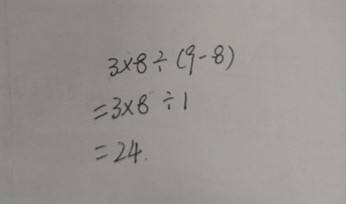 3×8÷(9-8)
=3×8÷1
=24.